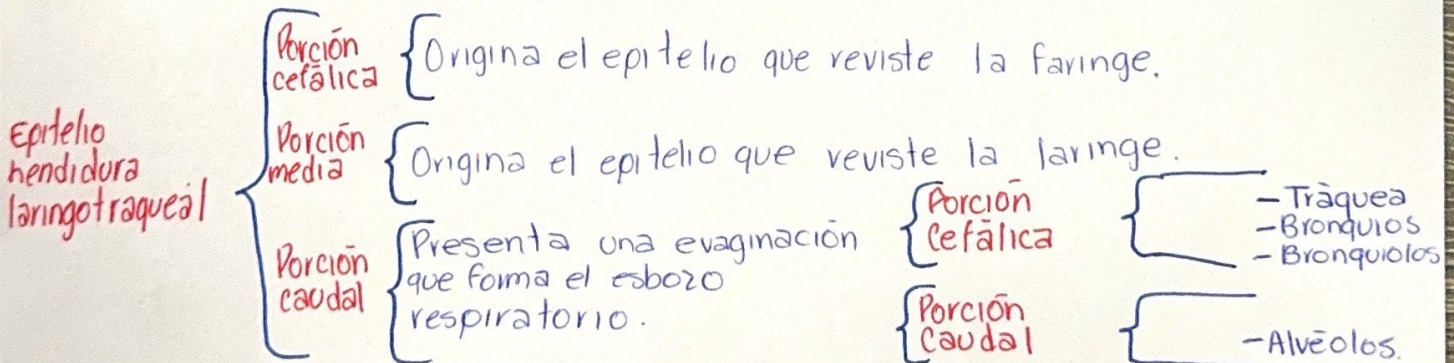 Epitelio
hendidura
laringotraqueal
Porción
cefálica
Origina el epitelio que reviste la faringe.
Porción
media
Origina el epitelio que reviste la laringe.
Porción
caudal
Presenta una evaginación
que forma el esbozo
respiratorio.
Porción
Cefálica
-Tràquea
-Bronquios
-Bronquiolos
Porción
Caudal
-Alvéolos.